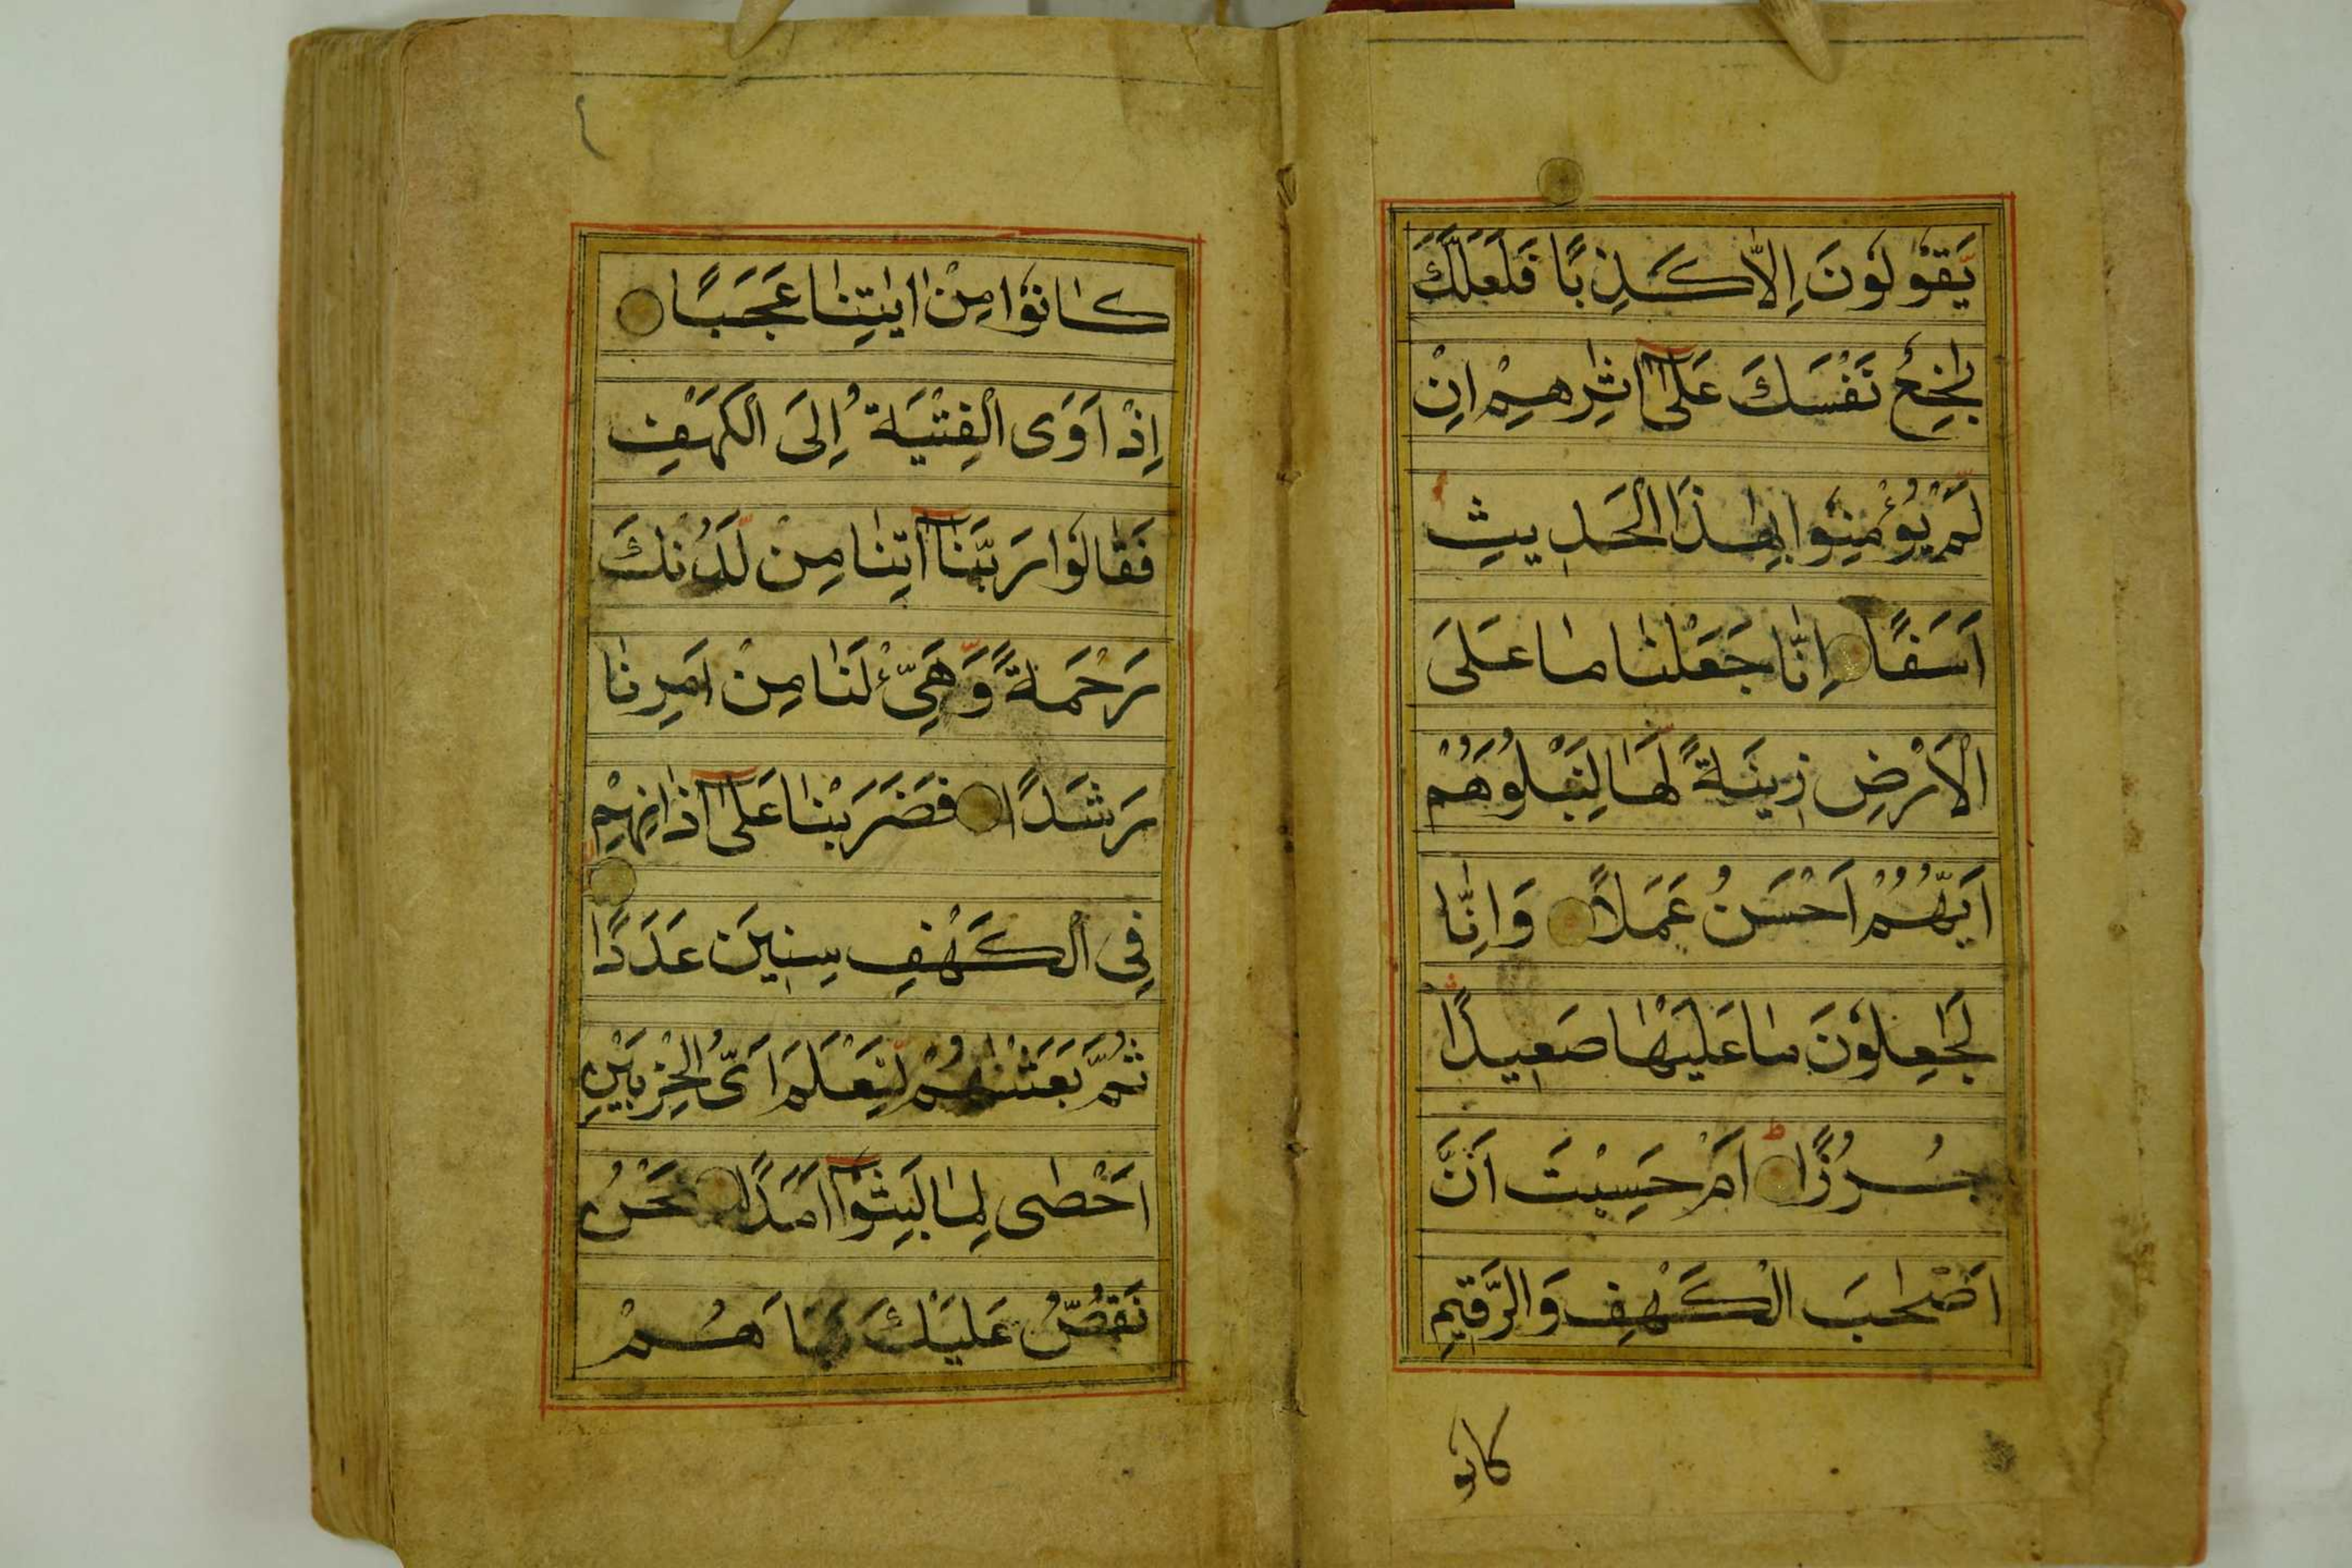 يَّقُوْلُوْنَ اِلَّا كَذِبًا فَلَعَلَّكَ
بَاخِعٌ نَّفْسَكَ عَلٰٓى اٰثَارِهِمْ اِنْ
لَّمْ يُؤْمِنُوْا بِهٰذَا الْحَدِيثِ
اَسَفًا اِنَّا جَعَلْنَا مَا عَلَى
الْاَرْضِ زِينَةً لَّهَا لِنَبْلُوَهُمْ
اَيُّهُمْ اَحْسَنُ عَمَلًا وَاِنَّا
لَجٰعِلُوْنَ مَا عَلَيْهَا صَعِيدًا
جُرُزًا ط اَمْ حَسِبْتَ اَنَّ
اَصْحٰبَ الْكَهْفِ وَالرَّقِيمِ
كانو
كَانُوْا مِنْ اٰيٰتِنَا عَجَبًا
اِذْ اَوَى الْفِتْيَةُ اِلَى الْكَهْفِ
فَقَالُوْا رَبَّنَآ اٰتِنَا مِنْ لَّدُنْكَ
رَحْمَةً وَّهَيِّئْ لَنَا مِنْ اَمْرِنَا
رَشَدًا فَضَرَبْنَا عَلٰٓى اٰذَانِهِمْ
فِى الْكَهْفِ سِنِينَ عَدَدًا
ثُمَّ بَعَثْنٰهُمْ لِنَعْلَمَ اَىُّ الْحِزْبَيْنِ
اَحْصٰى لِمَا لَبِثُوْٓا اَمَدًا نَحْنُ
نَقُصُّ عَلَيْكَ نَبَاَهُمْ